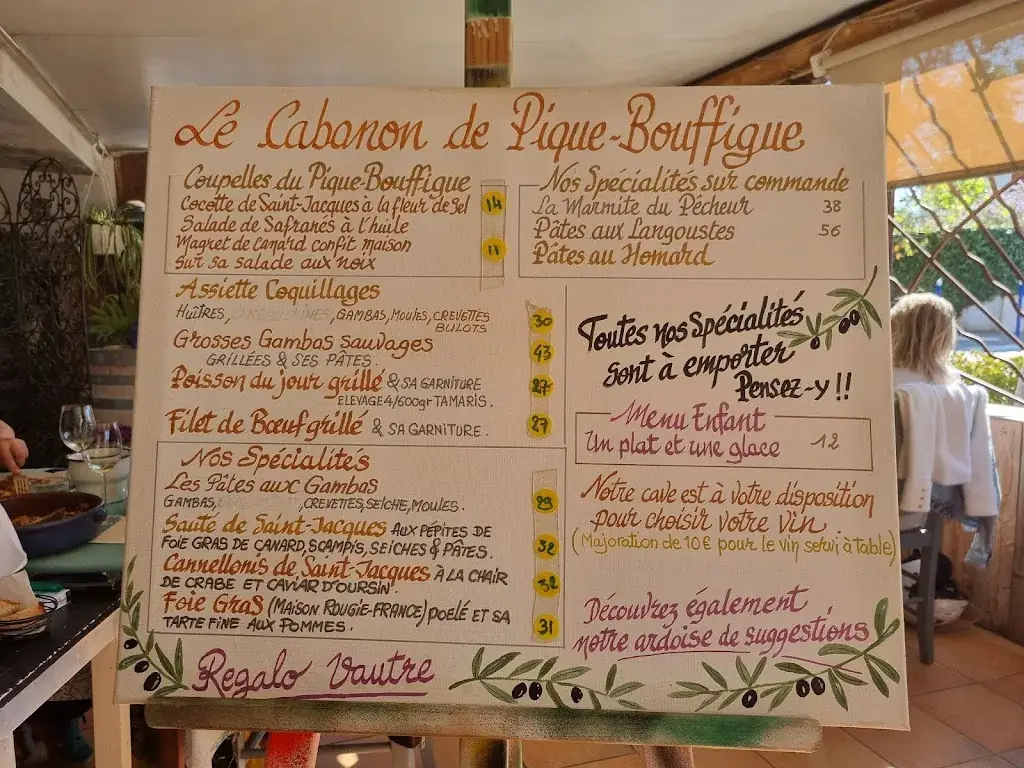 Le Cabanon de Pique-Bouffigue
Coupelles du Pique-Bouffigue
Cocotte de Saint-Jacques à la fleur de Sel 14
Salade de Safranés à l'huile
Magret de canard confit maison 11
sur sa salade aux noix
Assiette Coquillages
HUÎTRES, GAMBAS, MOULES, CREVETTES 30
BULOTS
Grosses Gambas Sauvages 43
GRILLÉES & SES PÂTES.
Poisson du jour grillé & SA GARNITURE 27
ELEVAGE 4/600gr TAMARIS.
Filet de Bœuf grillé & SA GARNITURE. 27
Nos Spécialités
Les Pâtes aux Gambas 29
GAMBAS, CREVETTES, SEICHE, MOULES.
Sauté de Saint-Jacques AUX PÉPITES DE 32
FOIE GRAS DE CANARD, SCAMPIS, SEICHES & PÂTES.
Cannellonis de Saint-Jacques À LA CHAIR 32
DE CRABE ET CAVIAR D'OURSIN.
Foie Gras (MAISON ROUGIE-FRANCE) POELÉ ET SA 31
TARTE FINE AUX POMMES.
Regalo Vautre
Nos Spécialités sur commande
La Marmite du Pécheur 38
Pâtes aux Langoustes 56
Pâtes au Homard
Toutes nos Spécialités
sont à emporter
Pensez-y !!
Menu Enfant
Un plat et une glace 12
Notre cave est à votre disposition
pour choisir votre vin.
(Majoration de 10€ pour le vin servi à table)
Découvrez également
notre ardoise de suggestions